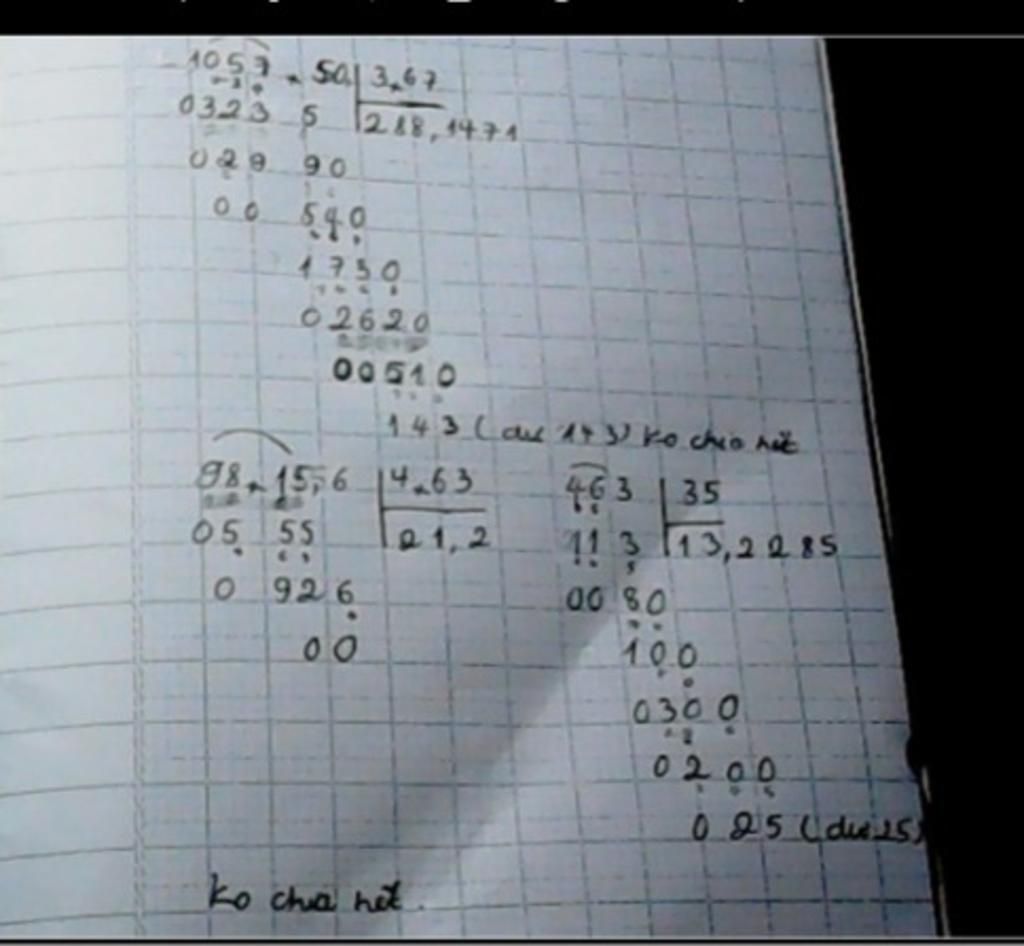 1057.50 3.67
0323 5 288,1471
029 90
00 540
1730
02620
00510
143 (dư 143) ko chia hết
98.15,6 4.63
05 55 21,2
0 926
00
463 35
113 13,2285
00 80
100
0300
0200
025 (dư 25)
ko chia hết.